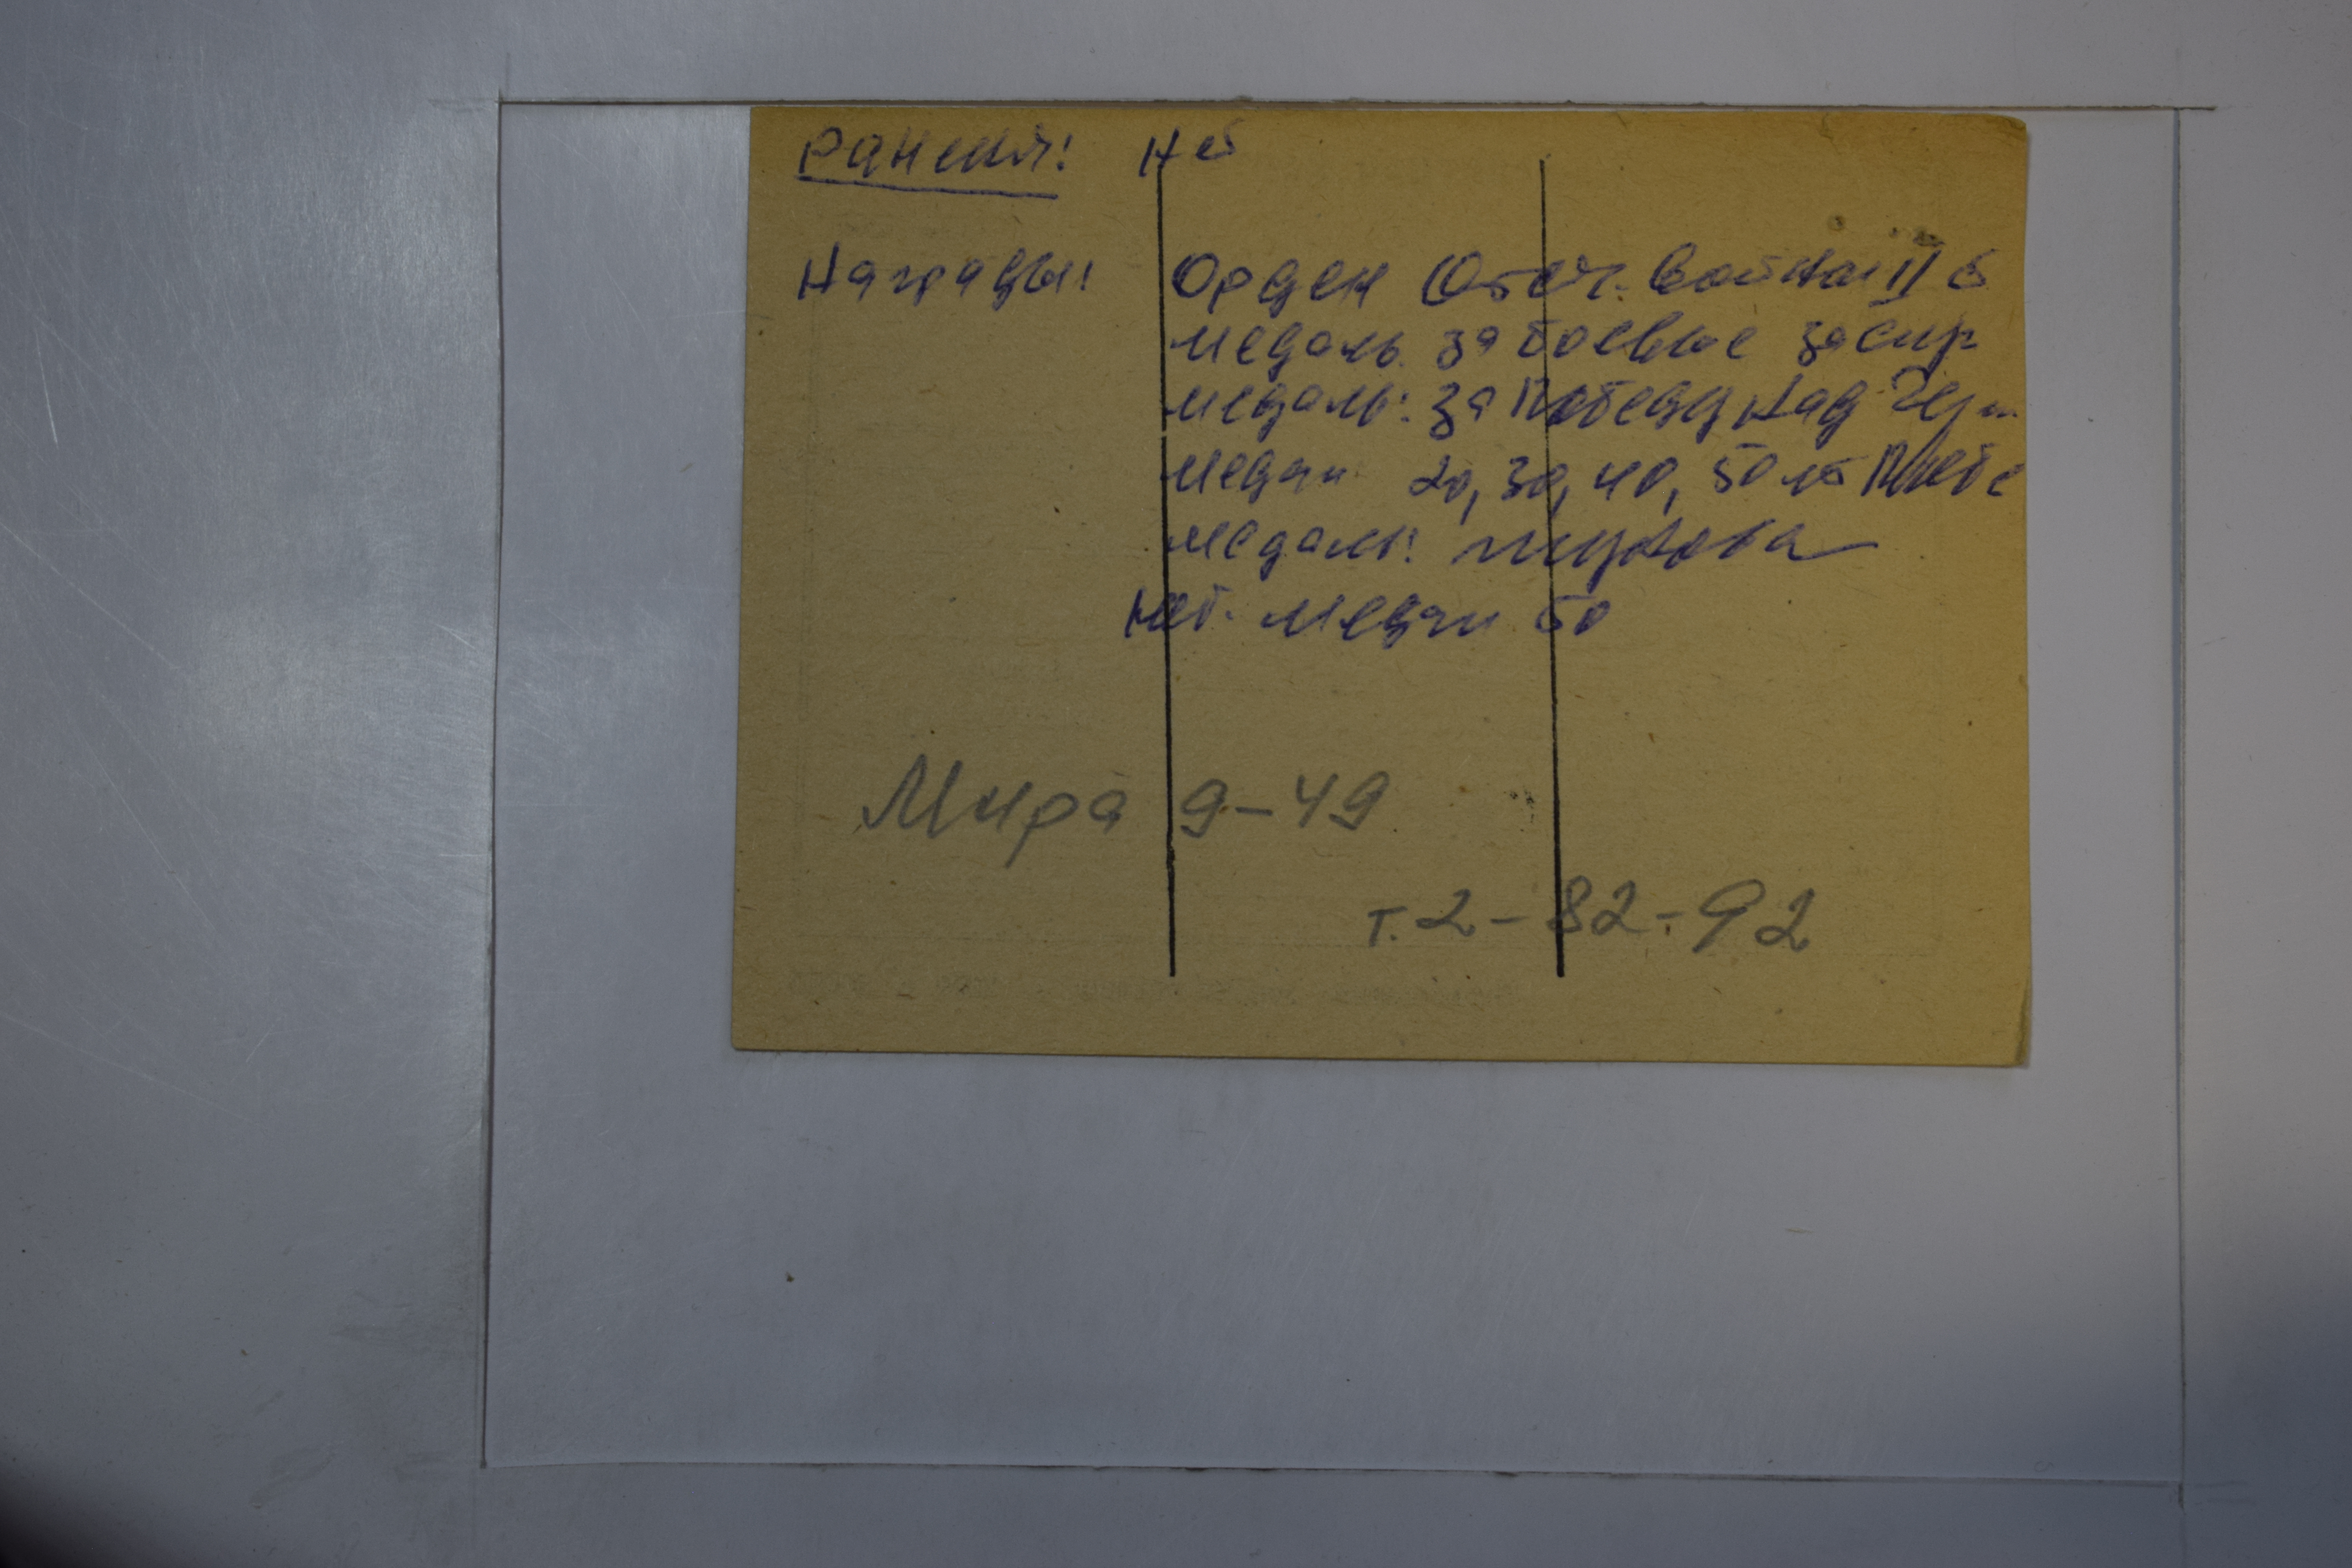 Ранения: нет
Награды: Орден Отеч. Войны II с
медаль за боевые заслуг
медаль: за Победу над Герм.
Медали 20, 30, 40, 50 лет Побе
медаль: Жукова
Нет. медали 50
Мира 9-49
т. 2-82-92